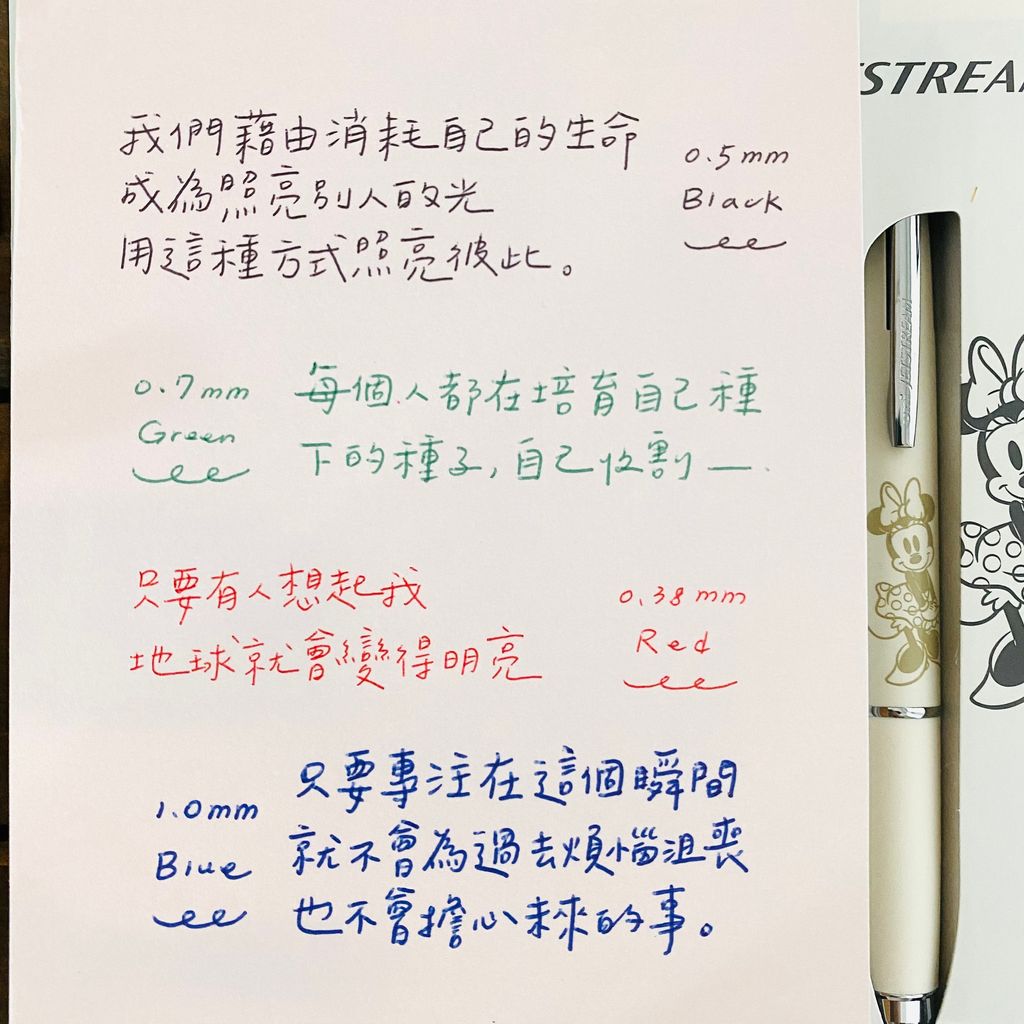 STREA
我們藉由消耗自己的生命
成為照亮別人的光
用這種方式照亮彼此。
0.5mm
Black
JETSTREAM
0.7mm
Green
每個人都在培育自己種
下的種子,自己收割一.
只要有人想起我
地球就會變得明亮
0.38mm
Red
1.0mm
Blue
只要專注在這個瞬間
就不會為過去煩惱沮喪
也不會擔心未來的事。